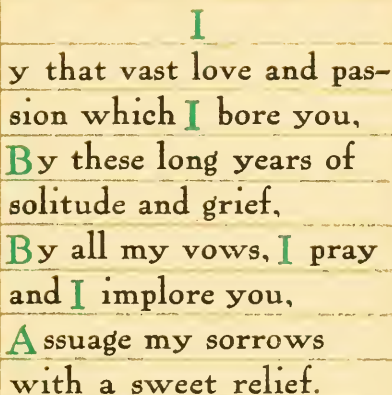 I
y that vast love and pas-
sion which I bore you,
By these long years of
solitude and grief,
By all my vows, I pray
and I implore you,
Assuage my sorrows
with a sweet relief.